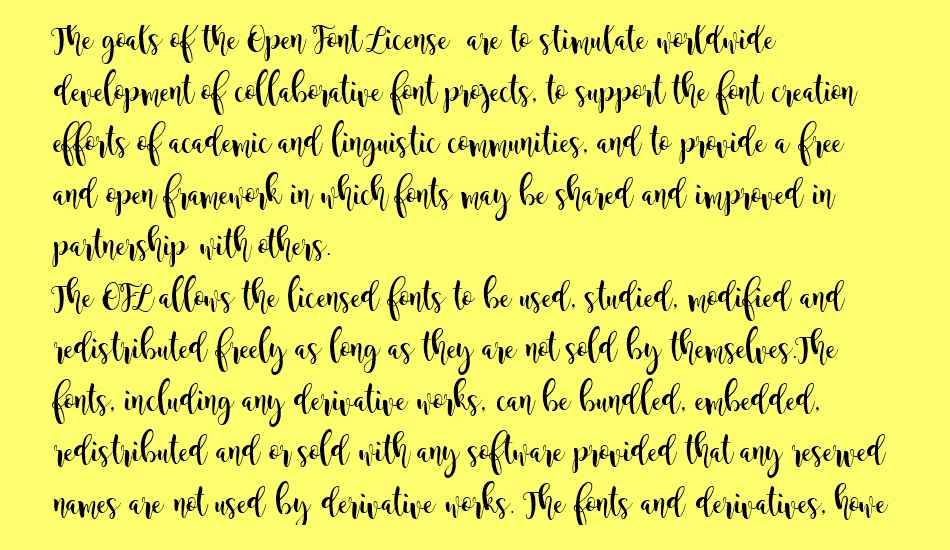 The goals of the Open Font License are to stimulate worldwide
development of collaborative font projects, to support the font creation
efforts of academic and linguistic communities, and to provide a free
and open framework in which fonts may be shared and improved in
partnership with others.
The OFL allows the licensed fonts to be used, studied, modified and
redistributed freely as long as they are not sold by themselves.The
fonts, including any derivative works, can be bundled, embedded,
redistributed and or sold with any software provided that any reserved
names are not used by derivative works. The fonts and derivatives, howe